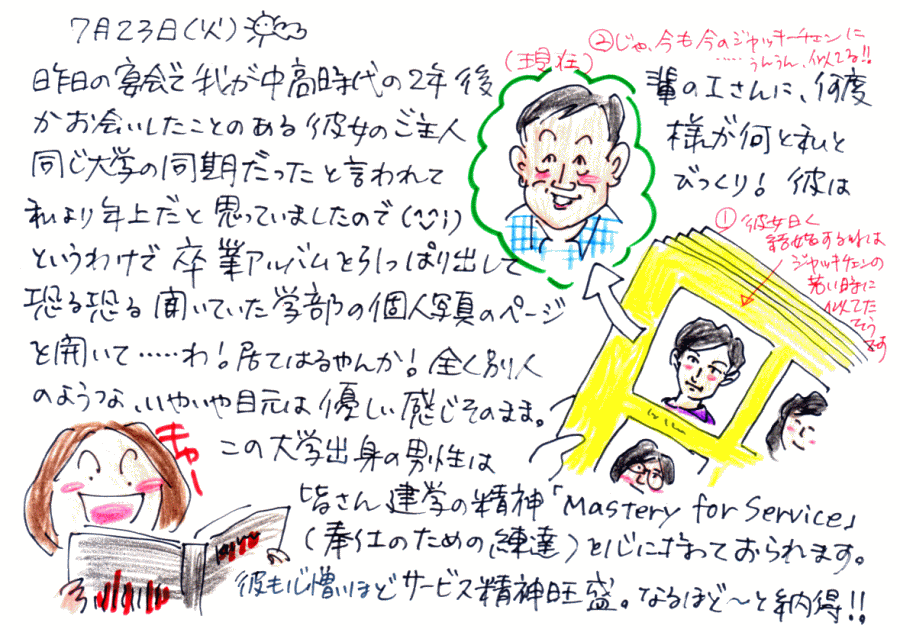 7月23日(火)
昨日の宴会で我が中高時代の2年後
輩のIさんに、何度
かお会いしたことのある彼女のご主人
様が何と私と
同じ大学の同期だったと言われて
びっくり! 彼は
私より年上だと思っていましたので(^^;)
というわけで卒業アルバムを引っぱり出して
恐る恐る開いていた学部の個人写真のページ
を開いて……わ!居てはるやんか!全く別人
のような、いやいや目元は優しい感じそのまま。
この大学出身の男性は
皆さん建学の精神「Mastery for Service」
(奉仕のための練達)を心に持っておられます。
彼も心憎いほどサービス精神旺盛。なるほど〜と納得!!
(現在)
②じゃ、今も今のジャッキーチェンに
……うんうん、似てる!!
①彼女曰く
結婚する時は
ジャッキチェンの
若い時に
似てた
そう
です
きゃー